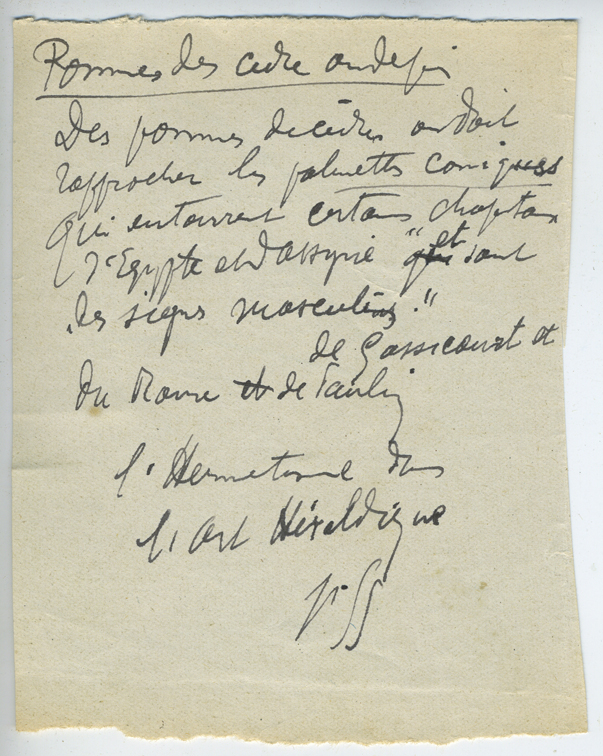 Pommes des cèdre ou de pin
Des pommes de cèdres on doit
rapprocher les palmettes coniques
qui entourent certains chapiteaux
d'Egypte et d'Assyrie "et sont
des signes masculins."
de Gassicourt et
du Roure de Paulin
l'Hermétisme dans
l'Art Héraldique